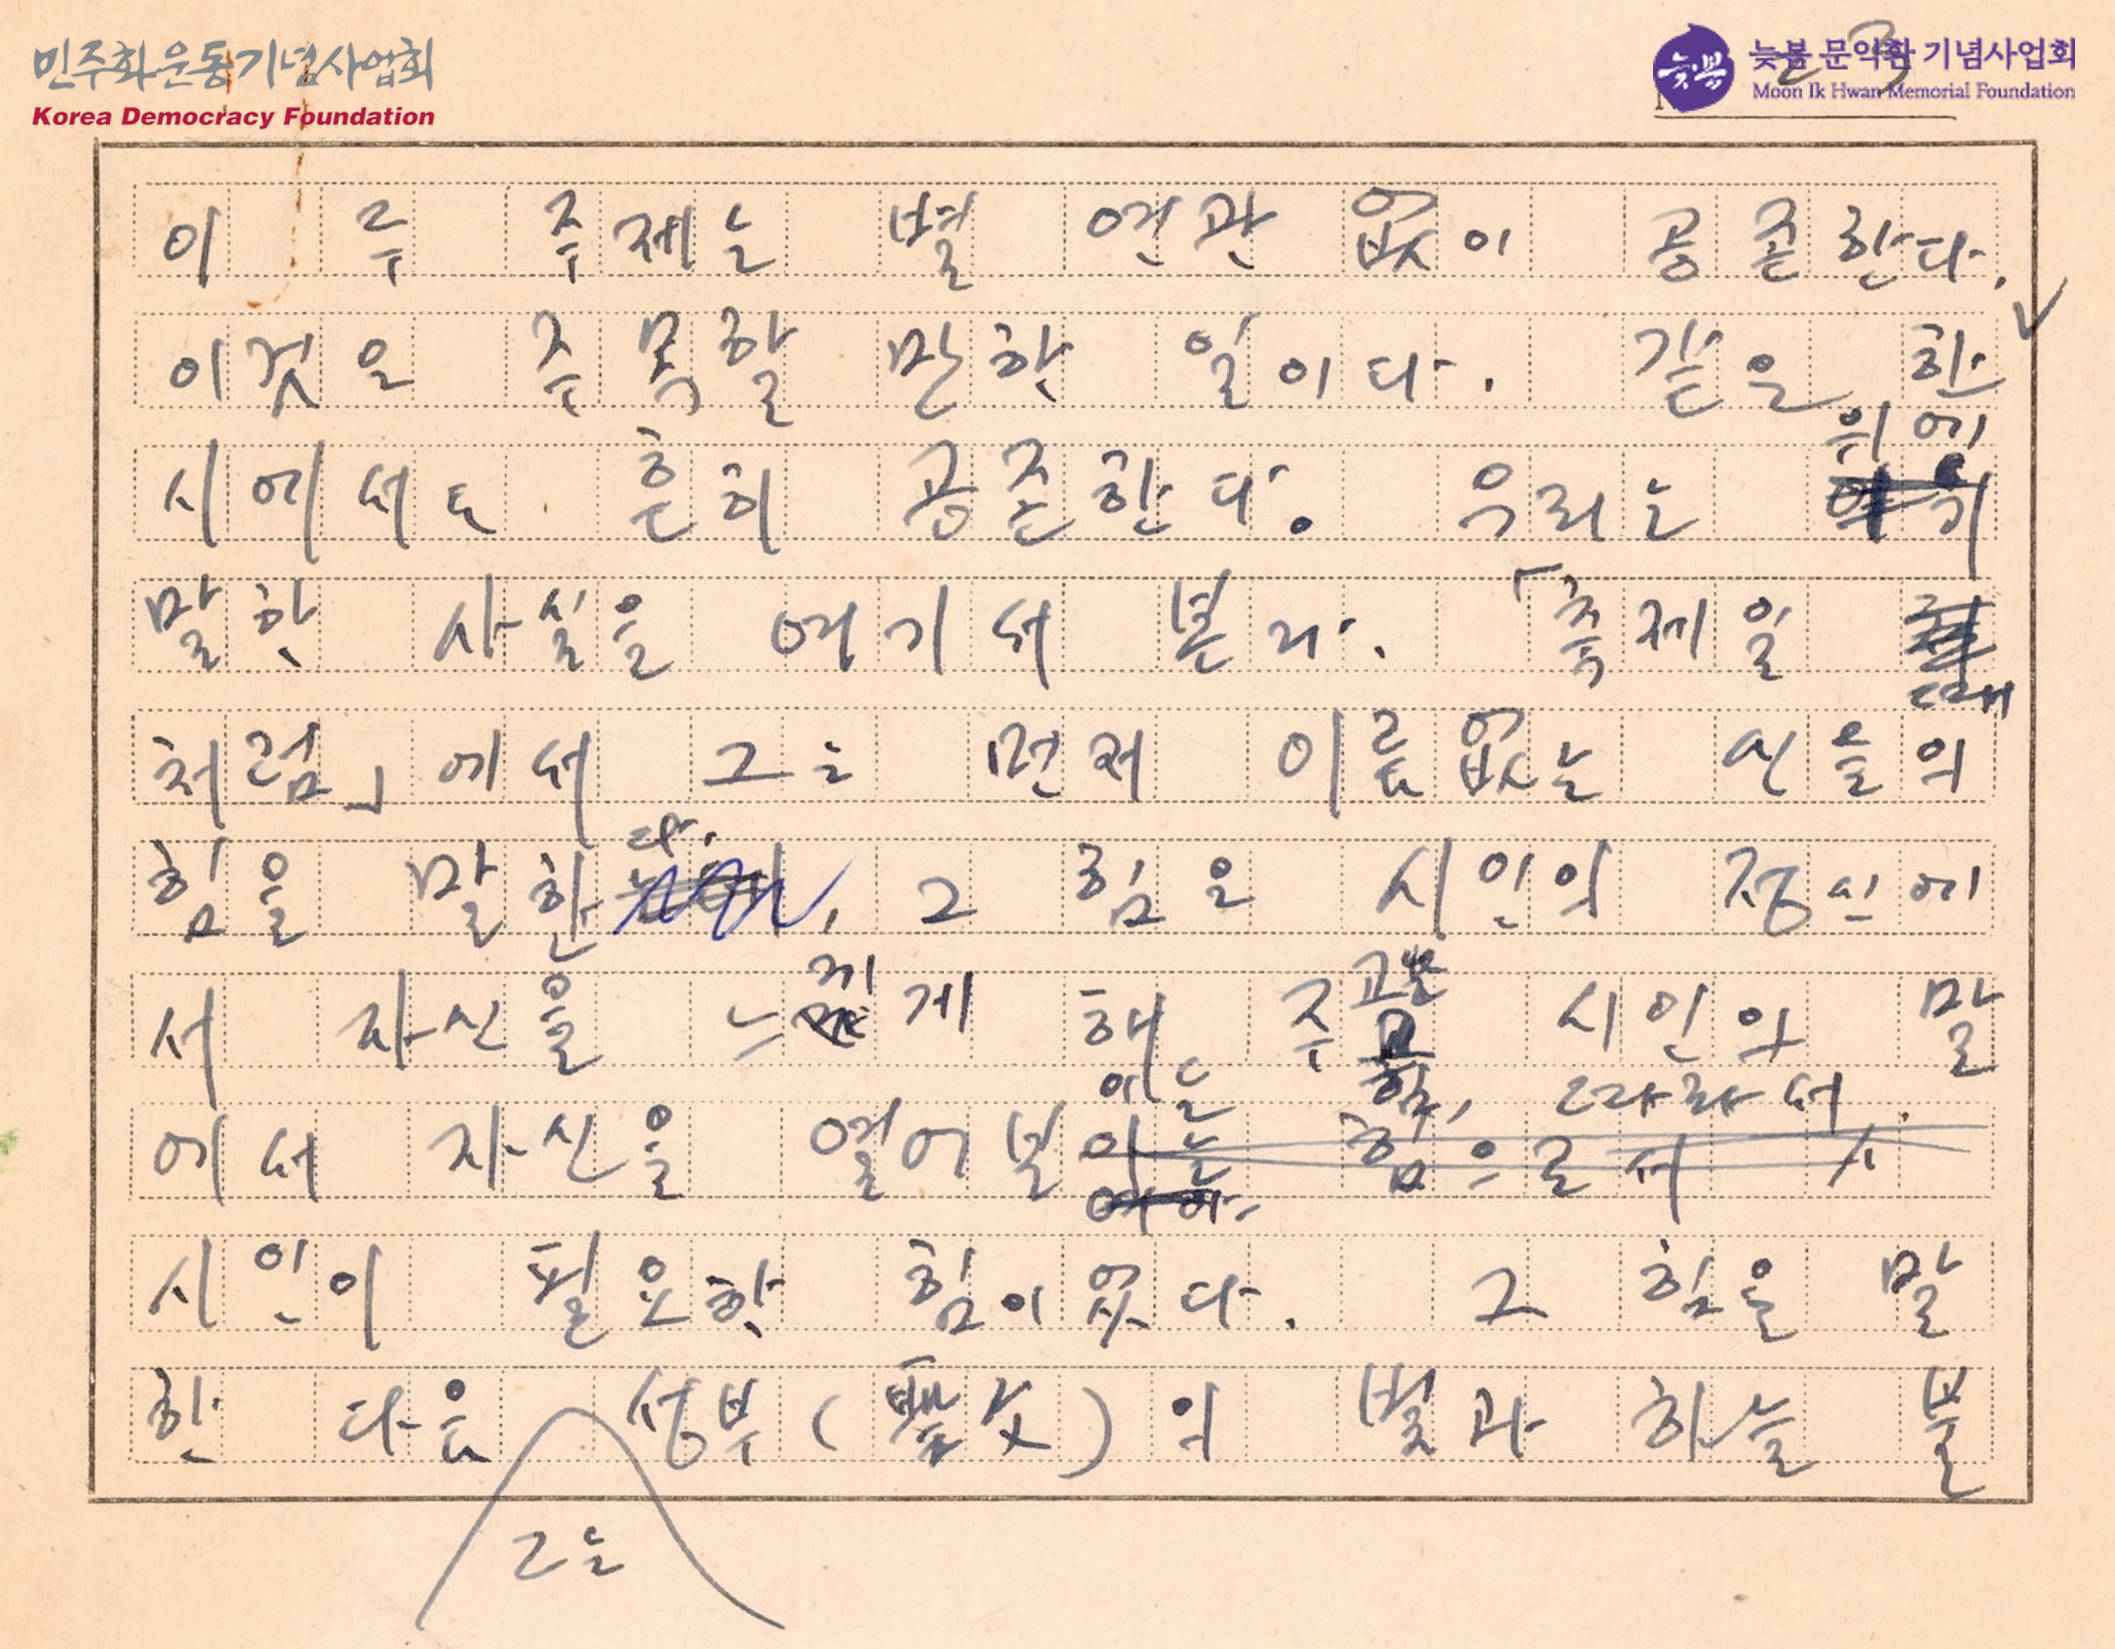 민주화운동기념사업회
Korea Democracy Foundation
늦봄 문익환 기념사업회
Moon Ik Hwan Memorial Foundation
23
이 두 주제는 별 연관 없이 공존한다.
이것은 주목할 만한 일이다. 같은 한
위에
시에서도 흔히 공존한다. 우리는
말한 사실을 여기서 본다. 「축제일
때
처럼」에서 그는 먼저 이름없는 신들의
다.
힘을 말한 그 힘은 시인의 정신에
끼
서 자신을 느 게 해 주고 시인의 말
에는 힘, 따라서
에서 자신을 열어 보 이는 힘으로서 시
시인이 필요한 힘이 있다. 그 힘을 말
한 다음 성부(聖父)의 빛과 하늘 불
그는